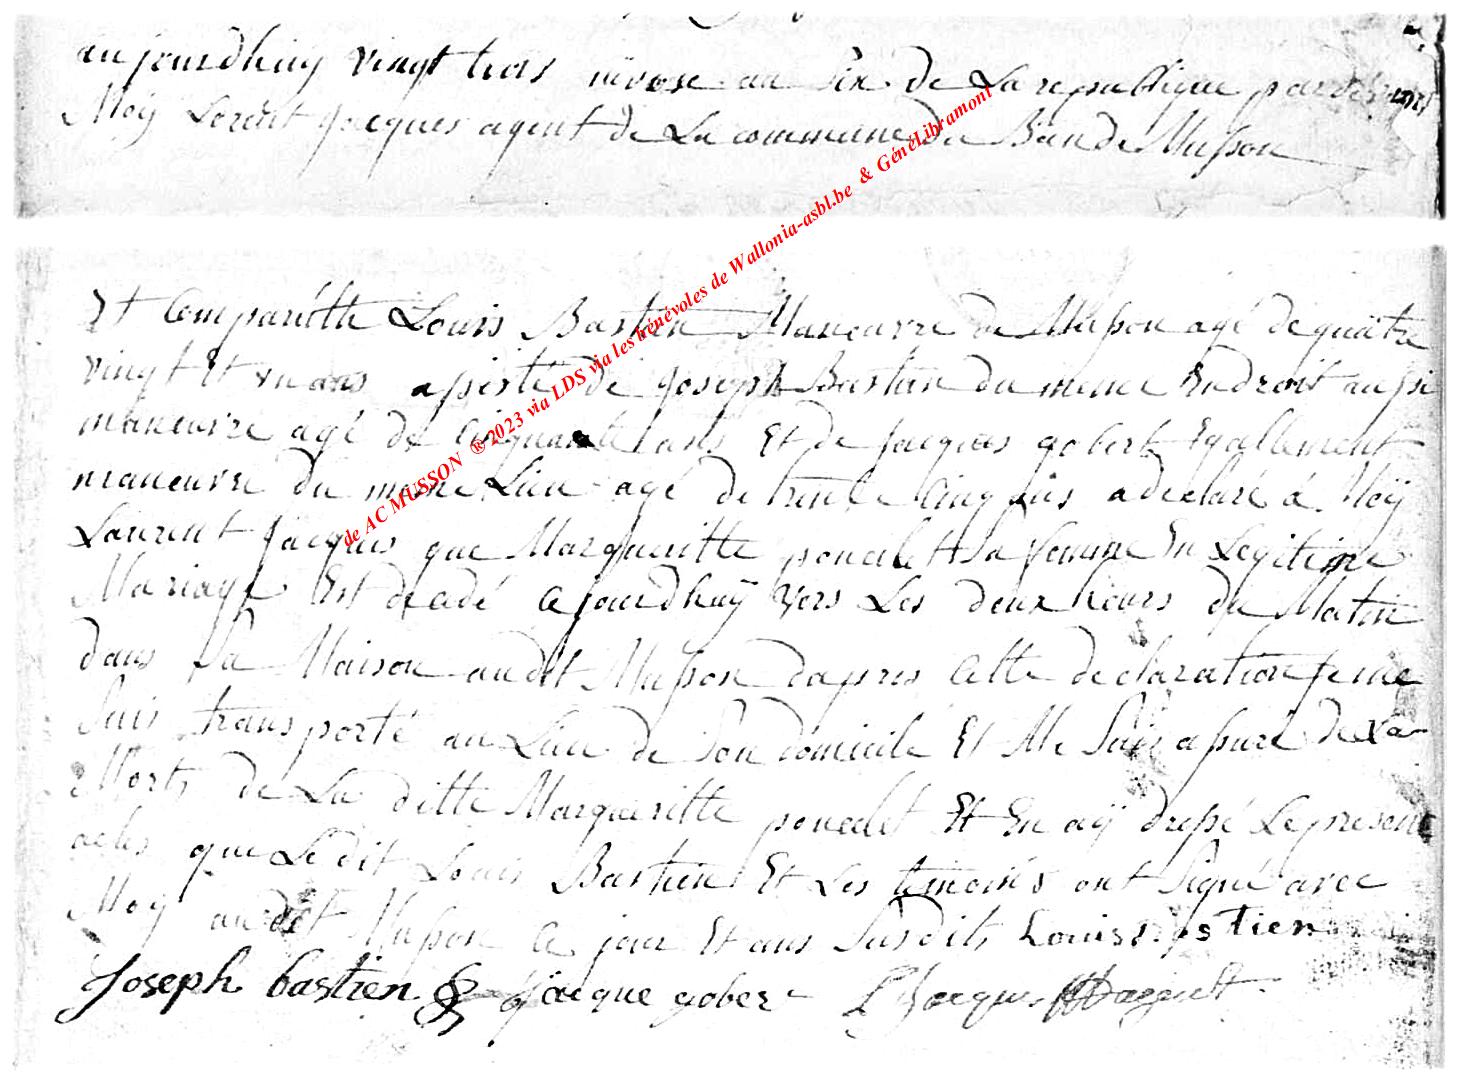 aujourdhuy vingt trois nivose an Six de La republique pardevant
Moÿ Lorent Jacques agent de La commune du Ban de Musson
Et Comparütte Louis Bastien Maneuvre de Musson agé de quattre
vingt Et un ans assisté de Joseph Bastien du meme Endroit aussi
maneuvre agé de Cinquante ans Et de Jacques gobert Egallement
maneuvre du meme Lieu agé de trente Cinq ans a declaré a Moÿ
Laurent Jacques que Margueritte poncelet Sa femme En Legitime
Mariage Est decedé Cejourdhuÿ vers Les deux heurs du Matin
dans Sa Maison audit Musson dapres Cette declaration je me
Suis transporté au Lieu de Son domicile Et Me Suis assuré de La
Mort de La ditte Margueritte poncelet Et En aÿ dressé Le present
actes que Le dit Louis Bastien Et Les temoins ont Signé avec
Moy audit Musson Ce jour Et ans Susdits Louis Bastien
Joseph bastien & Jacque gober L Jacques
de AC MUSSON ®2023 via LDS via les bénévoles de Wallonia-asbl.be & GénéLibramont